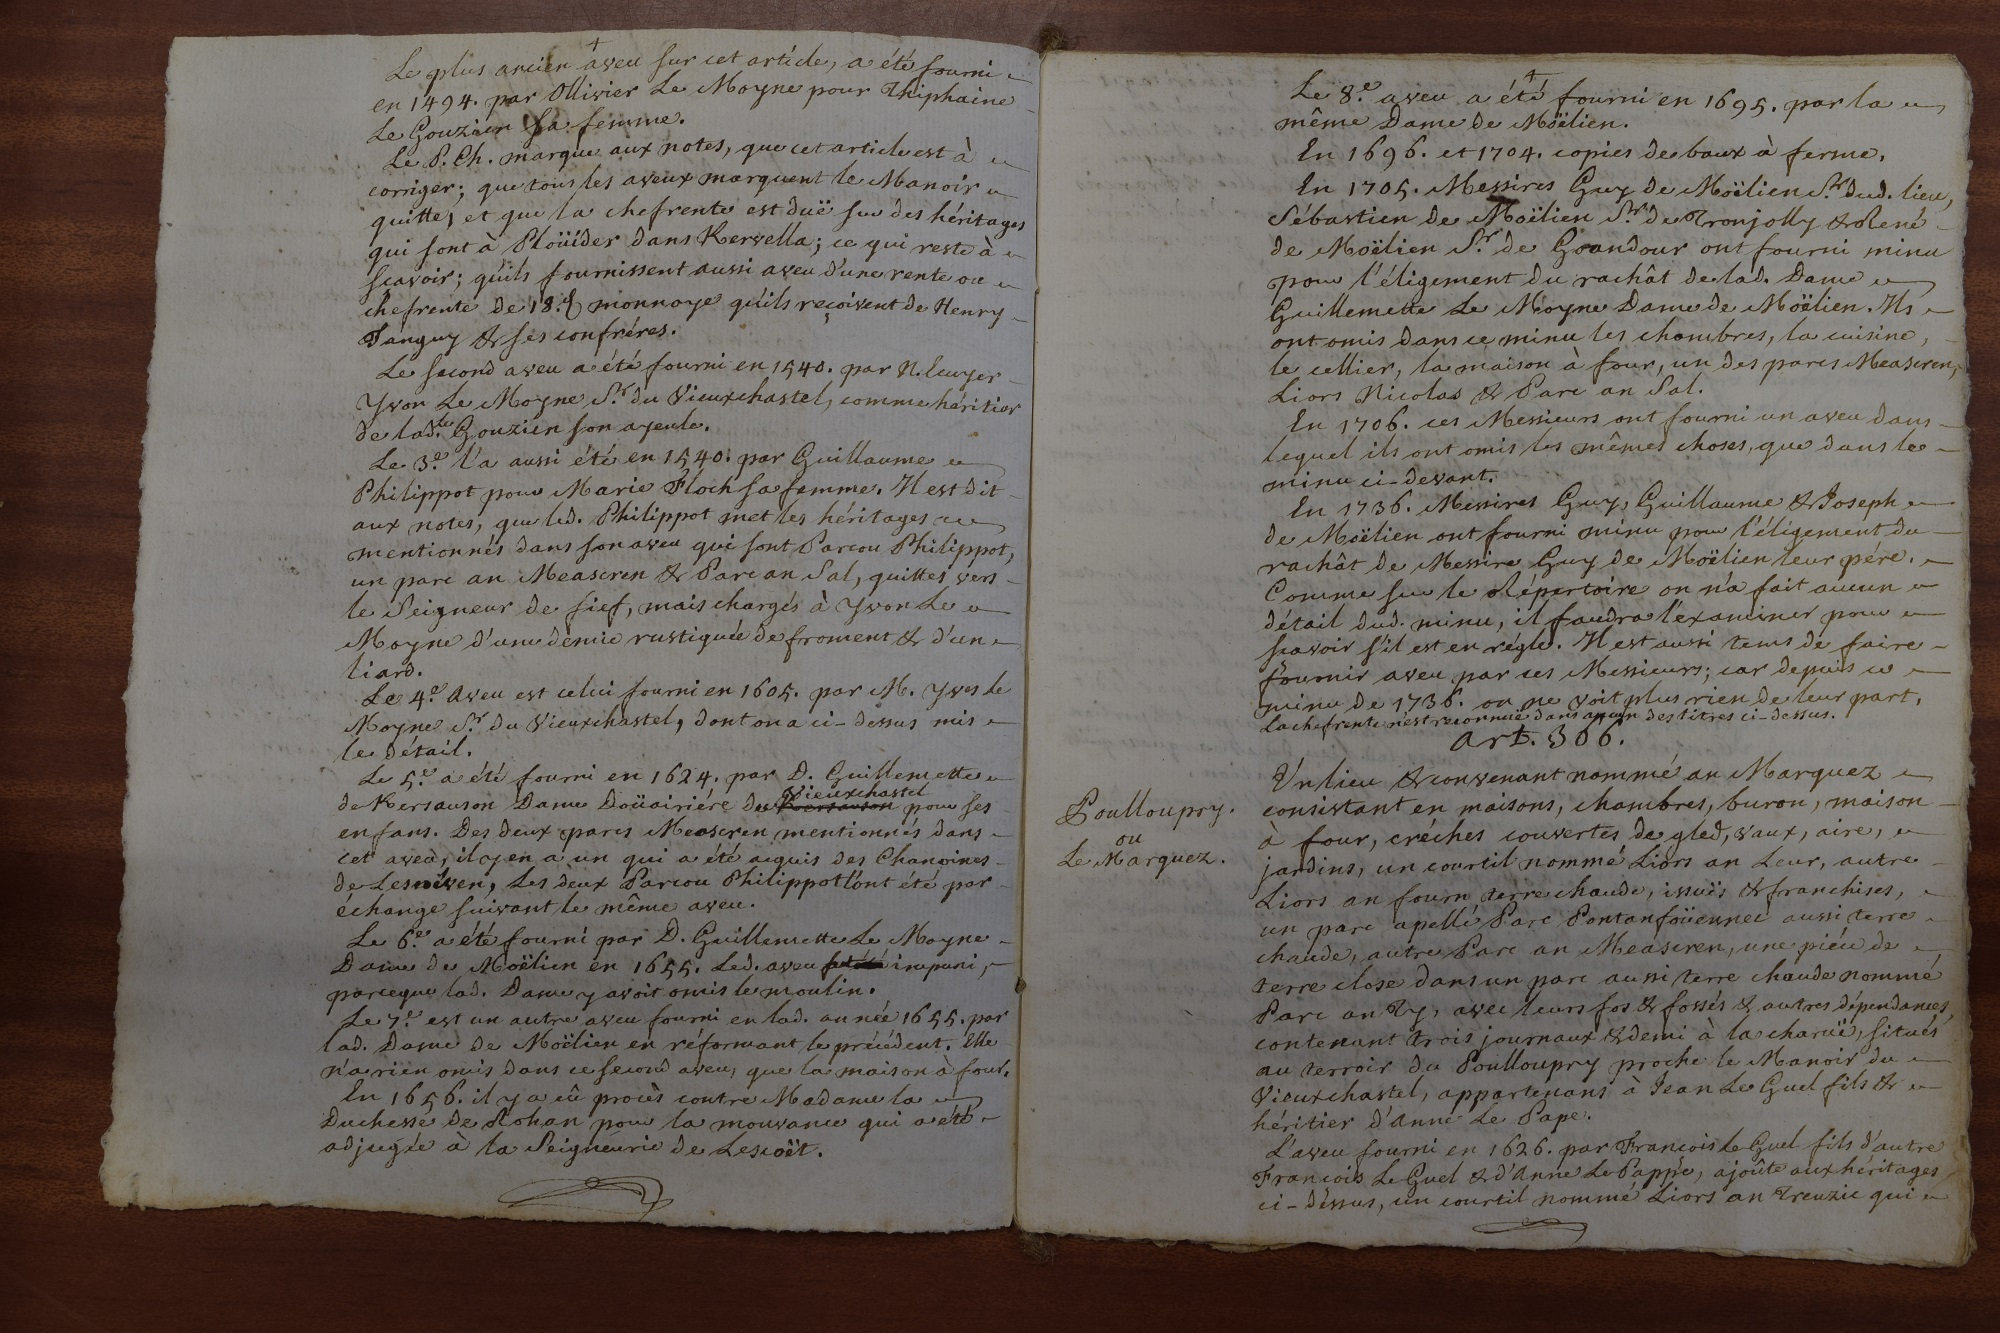 Le plus ancien aveu sur cet article, a été fourni
en 1494. par Ollivier Le Moyne pour Thiphaine
Le Gouzien sa femme.
Le P. Ch. marque aux notes, que cet article est à
corriger; que tous les aveux marquent le Manoir
quitte, et que la chefrente est duë sur des héritages
qui sont à Ploüider dans Kervella; ce qui reste à
sçavoir; qu'ils fournissent aussi aveu d'une rente ou
chefrente de 18.s monnoye qu'ils reçoivent de Henry
Tanguy & ses confréres.
Le second aveu a été fourni en 1540. par N. Ecuyer
Yvon Le Moyne Sr. du Vieuxchastel, comme héritier
de lad.te Gouzien son ayeule.
Le 3.e l'a aussi été en 1540. par Guillaume
Philippot pour Marie Floch sa femme. Il est dit
aux notes, que led. Philippot met les héritages
mentionnés dans son aveu qui sont Parcou Philippot,
un parc an Meascren & Parc an Sal, quittes vers
le Seigneur de fief, mais chargés à Yvon Le
Moyne d'une demie rustiquée de froment & d'un
liard.
Le 4.e Aveu est celui fourni en 1605. par M. Yves le
Moyne Sr. du Vieuxchastel, dont on a ci-dessus mis
le détail.
Le 5.e a été fourni en 1624. par D. Guillemette
de Kersauson Dame Doüairiére du Kersauson Vieuxchastel pour ses
enfans. Des deux parcs Meascren mentionnés dans
cet aveu, il y en a un qui a été acquis des Chanoines
de Lesneven, Les deux Parcou Philippot l'ont été par
échange suivant le même aveu.
Le 6.e a été fourni par D. Guillemette Le Moyne
Dame de Moëlien en 1655. Led. aveu impuni,
parceque lad. Dame y avoit omis le moulin.
Le 7.e est un autre aveu fourni en lad. année 1655. par
lad. Dame de Moëlien en réformant le précédent. Elle
n'a rien omis dans ce second aveu, que la maison à four.
En 1656. il y a eû procès contre Madame la
Duchesse de Rohan pour la mouvance qui a été
adjugée à la Seigneurie de Lescoët.
Le 8.e aveu a été fourni en 1695. par la
même Dame de Moëlien.
En 1696. et 1704. copies de baux à ferme.
En 1705. Messires Guy de Moëlien Sr. dud. lieu,
Sébastien de Moëlien Sr. de Tronjolly & René
de Moëlien Sr. de Goandour ont fourni minu
pour l'éligement du rachât de lad. Dame
Guillemette Le Moyne Dame de Moëlien. Ils
ont omis dans ce minu les chambres, la cuisine,
le cellier, la maison à four, un des parcs Meascren,
Liors Nicolas & Parc an Sal.
En 1706. ces Messieurs ont fourni un aveu dans
lequel ils ont omis les mêmes choses, que dans le
minu ci-devant.
En 1736. Messires Guy, Guillaume & Joseph
de Moëlien ont fourni minu pour l'éligement du
rachât de Messire Guy de Moëlien leur père.
Comme sur le Répertoire on n'a fait aucun
détail dud. minu, il faudra l'examiner pour
sçavoir s'il est en régle. Il est aussi tems de faire
fournir aveu par ces Messieurs; car depuis ce
minu de 1736. on ne voit plus rien de leur part.
La chefrente n'est reconnuë dans aucun des titres ci-dessus.
Art. 366.
Poulloupry.
ou
Le Marquez.
Un lieu & convenant nommé an Marquez
consistant en maisons, chambres, buron, maison
à four, créches couvertes de gled, vaux, aire,
jardins, un courtil nommé Liors an Leur, autre
Liors an fourn terre chaude, issuës & franchises,
un parc apellé Parc Pontanfoüennec aussi terre
chaude, autre Parc an Meascren, une piéce de
terre close dans un parc aussi terre chaude nommé
Parc an Ty, avec leurs fos & fossés & autres dépendances,
contenant trois journaux & demi à la charuë, situés
au terroir du Poulloupry proche le Manoir du
Vieuxchastel, appartenans à Jean Le Guel fils &
héritier d'Anne Le Pape.
L'aveu fourni en 1626. par François Le Guel fils d'autre
François Le Guel & d'Anne Le Pappe, ajoûte aux héritages
ci-dessus, un courtil nommé Liors an Treuzic qui